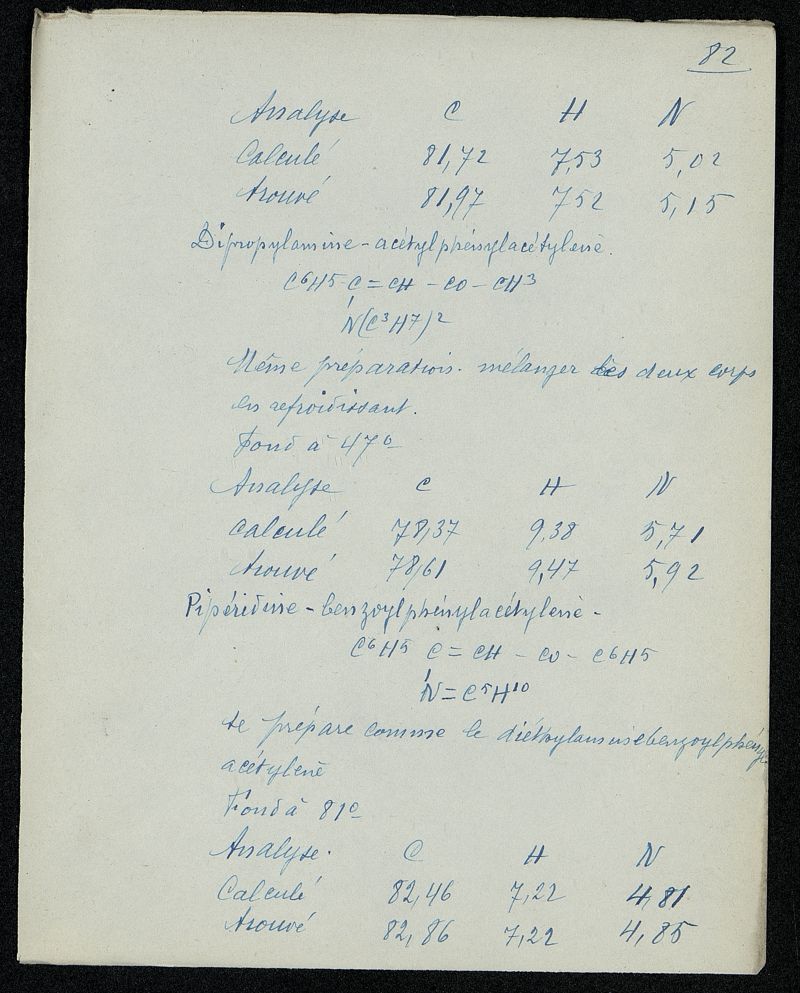 82
Analyse C H N
Calculé 81,72 7,53 5,02
trouvé 81,97 7,52 5,15
Dipropylamine-acétylphénylacétylène.
C6H5-C=CH-CO-CH3
N(C3H7)2
Même préparation. mélanger les deux corps
en refroidissant.
Fond à 47°
Analyse C H N
Calculé 78,37 9,38 5,71
trouvé 78,61 9,47 5,92
Pipéridine-benzoylphénylacétylène-
C6H5 C=CH-CO-C6H5
N=C5H10
se prépare comme le diéthylaminebenzoylphényl
acétylène
Fond à 81°
Analyse. C H N
Calculé 82,46 7,22 4,81
trouvé 82,86 7,22 4,85